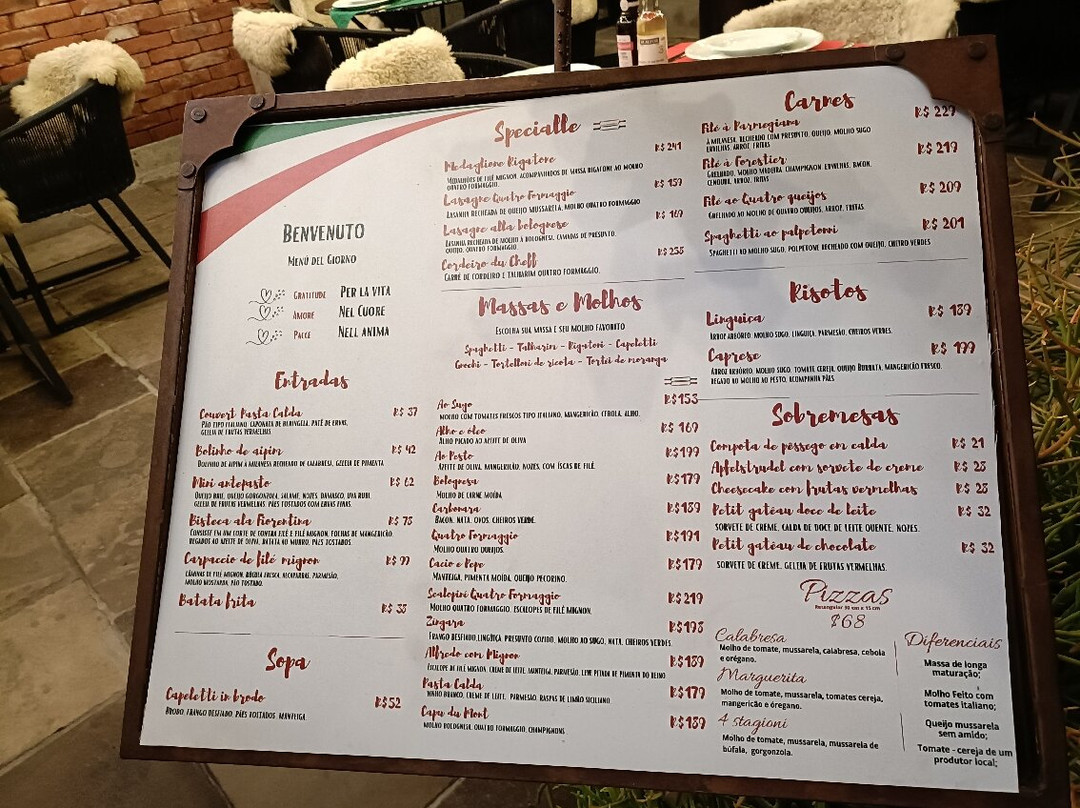 BENVENUTO
MENÙ DEL GIORNO
GRATITUDE PER LA VITA
AMORE NEL CUORE
PACCE NELL ANIMA
Entradas
Couvert Pasta Calda R$ 37
PÃO TIPO ITALIANO, CAPONATA DE BERINGELA, PATÊ DE ERVAS,
GELEIA DE FRUTAS VERMELHAS
Bolinho de aipim R$ 42
BOLINHO DE AIPIM À MILANESA RECHEADO DE CALABRESA, GELEIA DE PIMENTA
Mini antepasto R$ 62
QUEIJO BRIE, QUEIJO GORGONZOLA, SALAME, NOZES, DAMASCO, UVA RUBI,
GELEIA DE FRUTAS VERMELHAS, PÃES TOSTADOS COM ERVAS FINAS.
Bisteca ala Fiorentina R$ 78
CONSISTE EM UM CORTE DE CONTRA FILÉ E FILÉ MIGNON, FOLHAS DE MANGERICÃO
REGADOS AO AZEITE DE OLIVA, BATATA AO MURRO, PÃES TOSTADOS.
Carpaccio de filé mignon R$ 99
LÂMINAS DE FILÉ MIGNON, RÚCULA FRESCA, ALCAPARRAS, PARMESÃO,
MOLHO MOSTARDA, PÃO TOSTADO.
Batata frita R$ 38
Sopa
Capeletti in brodo R$52
BRODO, FRANGO DESFIADO, PÃES TOSTADOS, MANTEIGA
Specialle
Medaglione Rigatone R$ 241
MEDALHÕES DE FILÉ MIGNON, ACOMPANHADOS DE MASSA RIGATONE AO MOLHO
QUATRO FORMAGGIO.
Lasagne Quatro Formaggio R$ 159
LASANHA RECHEADA DE QUEIJO MUSSARELA, MOLHO QUATRO FORMAGGIO
Lasagne alla bolognese R$ 169
LASANHA RECHEADA DE MOLHO À BOLOGNESA, CAMADAS DE PRESUNTO,
QUEIJO, QUATRO FORMAGGIO.
Cordeiro du Cheff R$ 235
CARRÉ DE CORDEIRO E TALHARIM QUATRO FORMAGGIO.
Massas e Molhos
ESCOLHA SUA MASSA E SEU MOLHO FAVORITO
Spaghetti - Talharim - Rigatoni - Capeletti
Gnochi - Tortelloni de ricota - Tortei de moranga
Ao Sugo R$153
MOLHO COM TOMATES FRESCOS TIPO ITALIANO, MANGERICÃO, CEBOLA, ALHO.
Alho e óleo R$ 169
ALHO PICADO AO AZEITE DE OLIVA
Ao Pesto R$199
AZEITE DE OLIVA, MANGERICÃO, NOZES, COM ISCAS DE FILÉ.
Bolognesa R$179
MOLHO DE CARNE MOÍDA.
Carbonara R$189
BACON, NATA, OVOS, CHEIROS VERDE.
Quatro Formaggio R$191
MOLHO QUATRO QUEIJOS.
Cacio e Pepe R$179
MANTEIGA, PIMENTA MOÍDA, QUEIJO PECORINO.
Scalopini Quatro Formaggio R$219
MOLHO QUATRO FORMAGGIO, ESCALOPES DE FILÉ MIGNON.
Zingara R$198
FRANGO DESFIADO, LINGUIÇA, PRESUNTO COZIDO, MOLHO AO SUGO, NATA, CHEIROS VERDES.
Alfredo com Mignon R$189
ESCALOPE DE FILÉ MIGNON, CREME DE LEITE, MANTEIGA, PARMESÃO, LEVE PITADA DE PIMENTA DO REINO
Pasta Calda R$179
VINHO BRANCO, CREME DE LEITE, PARMESÃO, RASPAS DE LIMÃO SICILIANO
Capu du Mont R$189
MOLHO BOLOGNESE, QUATRO FORMAGGIO, CHAMPIGNONS
Carnes
Filé à Parmegiana R$ 227
À MILANESE, RECHEADO COM PRESUNTO, QUEIJO, MOLHO SUGO
ERVILHAS, ARROZ, FRITAS
Filé à Forestier R$ 219
GRELHADO, MOLHO MADEIRA, CHAMPIGNON, ERVILHAS, BACON,
CENOURA, ARROZ, FRITAS
Filé ao Quatro queijos R$ 209
GRELHADO AO MOLHO DE QUATRO QUEIJOS, ARROZ, FRITAS
Spaghetti ao polpetoni R$ 201
SPAGHETTI AO MOLHO SUGO, POLPETONE RECHEADO COM QUEIJO, CHEIRO VERDES
Risotos
Linguiça R$ 189
ARROZ ARBÓREO, MOLHO SUGO, LINGUIÇA, PARMESÃO, CHEIROS VERDES.
Caprese R$ 199
ARROZ ARBÓREO, MOLHO SUGO, TOMATE CEREJA, QUEIJO BURRATA, MANGERICÃO FRESCO,
REGADO AO MOLHO AO PESTO, ACOMPANHA PÃES
Sobremesas
Compota de pêssego em calda R$ 21
Apfelstrudel com sorvete de creme R$ 28
Cheesecake com frutas vermelhas R$ 28
Petit gatêau doce de leite R$ 32
SORVETE DE CREME, CALDA DE DOCE DE LEITE QUENTE, NOZES.
Petit gatêau de chocolate R$ 32
SORVETE DE CREME, GELEIA DE FRUTAS VERMELHAS.
Pizzas
Retangular 30 cm x 15 cm
$68
Calabresa
Molho de tomate, mussarela, calabresa, cebola
e orégano.
Marguerita
Molho de tomate, mussarela, tomates cereja,
mangericão e óregano.
4 stagioni
Molho de tomate, mussarela, mussarela de
búfala, gorgonzola.
Diferenciais
Massa de longa
maturação;
Molho Feito com
tomates italiano;
Queijo mussarela
sem amido;
Tomate - cereja de um
produtor local;